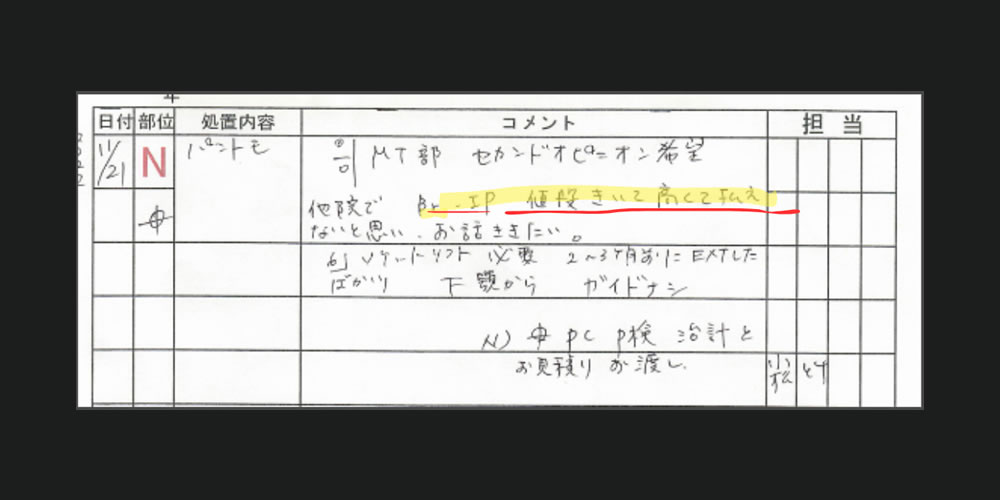 日付 部位 処置内容 コメント 担当
11/21 N パントモ MT部 セカンドオピニオン希望
他院で Br.IP 値段きいて高くて払え
ないと思い、お話ききたい。
ソケットリフト 必要 2〜3ヶ月前にEXTした
ばかり 下顎から ガイドナシ
N) PC P検 治計と
お見積りお渡し 小松